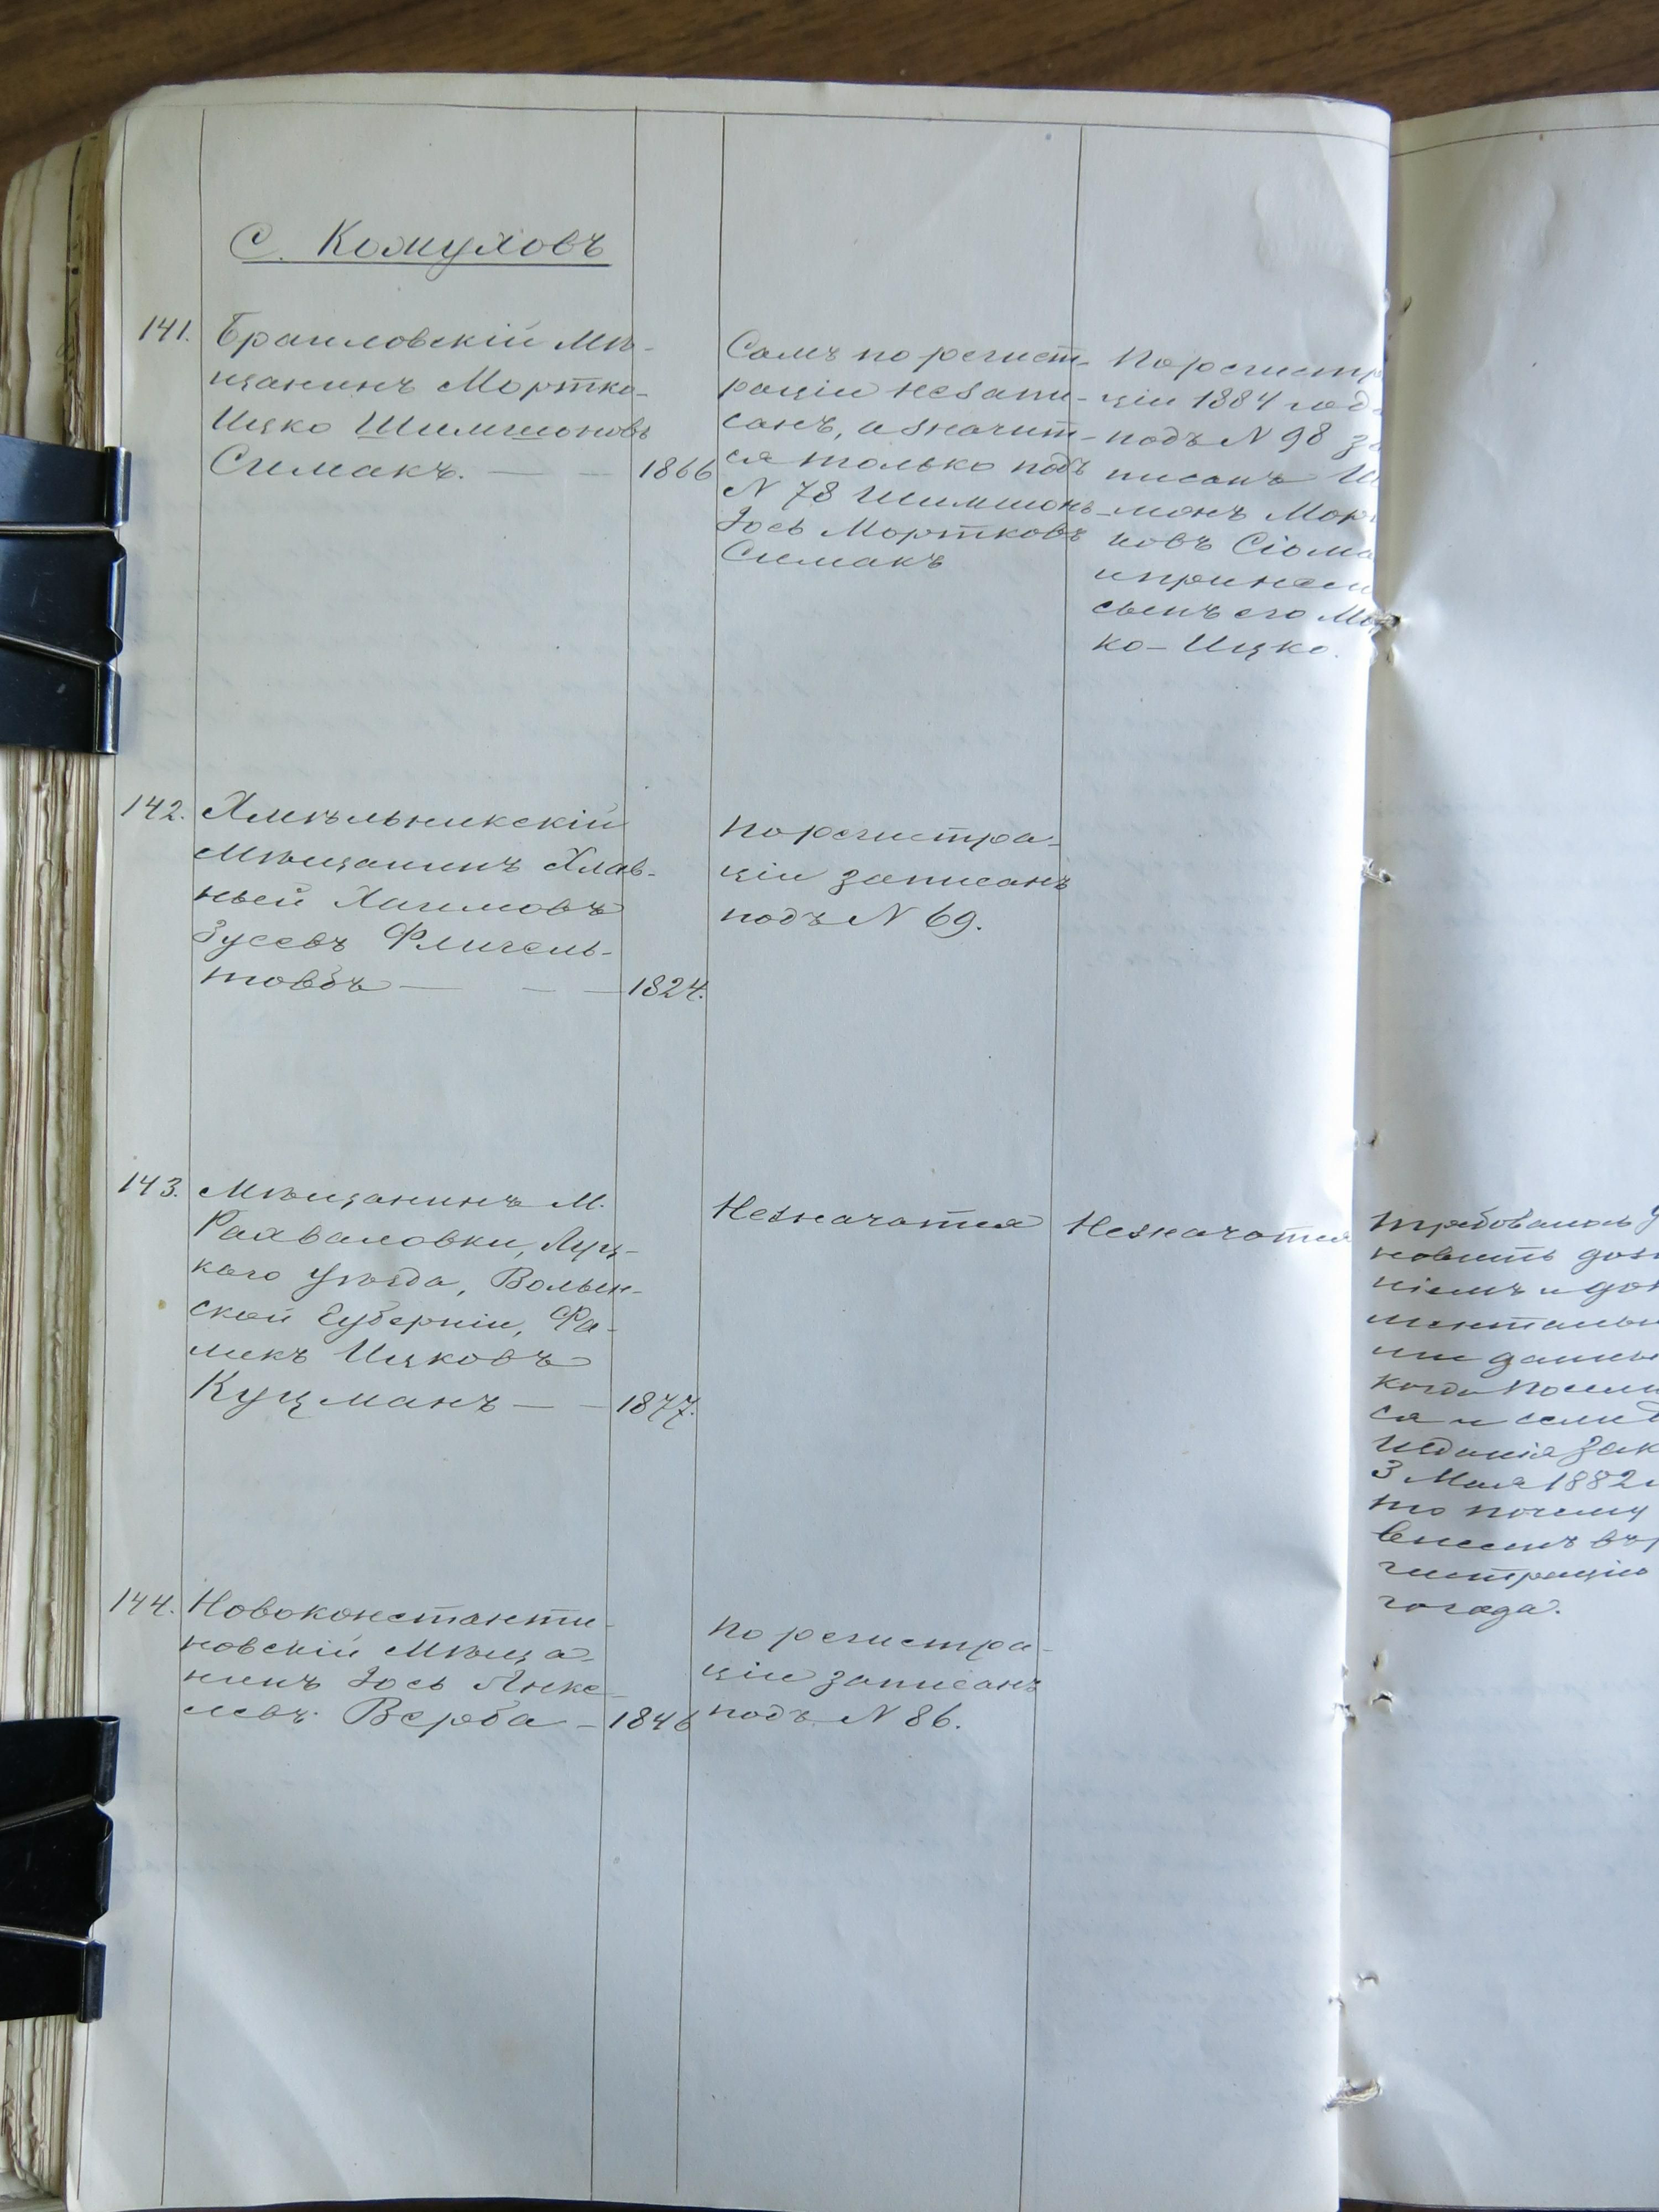 С. Кожуховъ
141.
Браиловскій Мѣ-
щанинъ Мортко-
Ицко Шимшоновъ
Симакъ. — — 1866
Самъ по регист-
раціи незапи-
санъ, а значит-
ся только подъ
N 78 Шимшонъ-
Іось Мортковъ
Симакъ
По регистр
ціи 1884 год
подъ N 98 за
писанъ Ш
монъ Мор
ковъ Сіома
и при нем
сынъ его Мор
ко-Ицко.
142.
Хмѣльникскій
Мѣщанинъ Хлав-
ней Хаимовъ
Зусевъ Флигель-
товбъ — — — 1824.
По регистра-
ціи записанъ
подъ N 69.
143.
Мѣщанинъ М.
Рахваловки, Луц-
каго Уѣзда, Волын-
ской Губерніи, Фа-
ликъ Ицковъ
Куцманъ — — 1877.
Незначатся
Незначатся
Требовалось у
новить дозн
ніемъ и док
ментальны
ми данны
когда посели
ся и если д
изданія Зак
3 Мая 1882 г
то почему
внесенъ въ р
гистрацію
го года.
144.
Новоконстанти-
новскій Мѣща-
нинъ Іось Янке-
левъ Верба — 1846
По регистра-
ціи записанъ
подъ N 86.